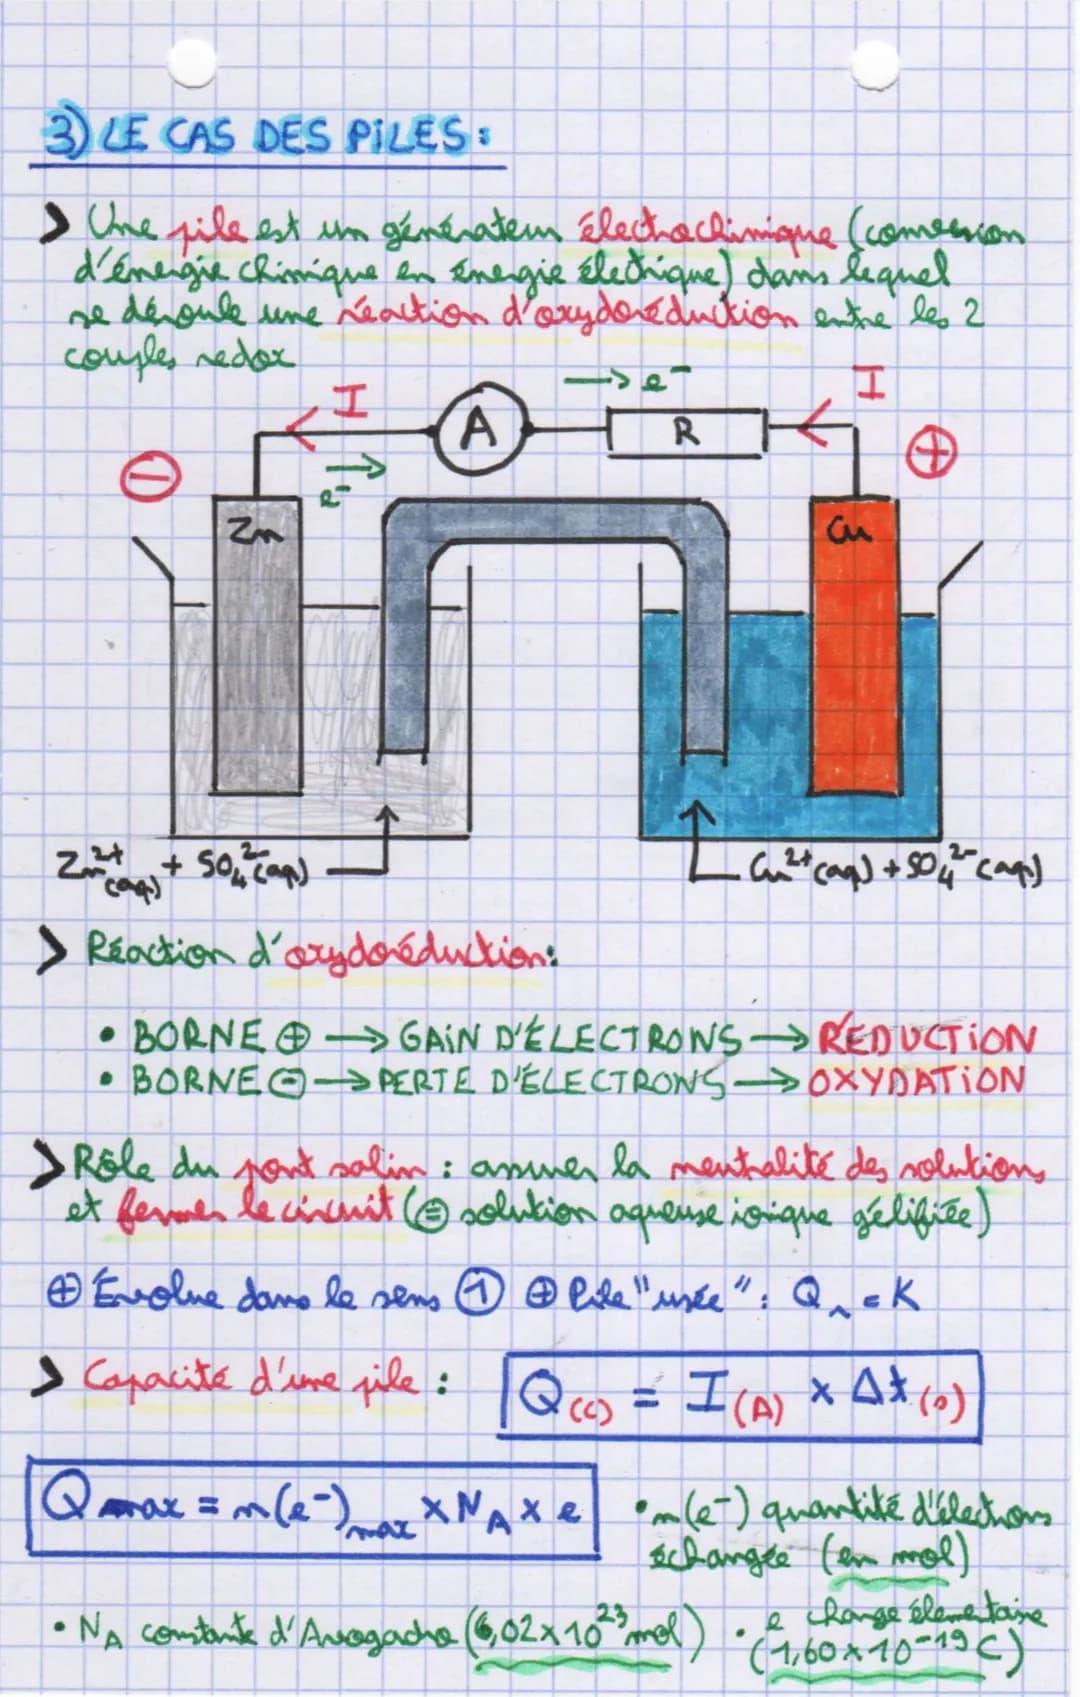 3) LE CAS DES PILES :
> Une pile est un générateur électrochimique (conversion
d'énergie chimique en énergie électrique) dans lequel
se déroule une réaction d'oxydoréduction entre les 2
couples redox
I → e⁻ I
A R
⊖ e⁻ → ⊕
Zn Cu
Zn²⁺(aq) + SO₄²⁻(aq) Cu²⁺(aq) + SO₄²⁻(aq)
> Réaction d'oxydoréduction :
• BORNE ⊕ → GAIN D'ÉLECTRONS → RÉDUCTION
• BORNE ⊖ → PERTE D'ÉLECTRONS → OXYDATION
> Rôle du pont salin : assurer la neutralité des solutions
et fermer le circuit (= solution aqueuse ionique gélifiée)
⊕ Évolue dans le sens ① ⊕ Pile "usée" : Qr = K
> Capacité d'une pile : Q(C) = I(A) × Δt(s)
Qmax = n(e⁻)max × NA × e
• n(e⁻) quantité d'électrons
échangée (en mol)
• NA constante d'Avogadro (6,02×10²³ mol) • e charge élémentaire
(1,60×10⁻¹⁹ C)